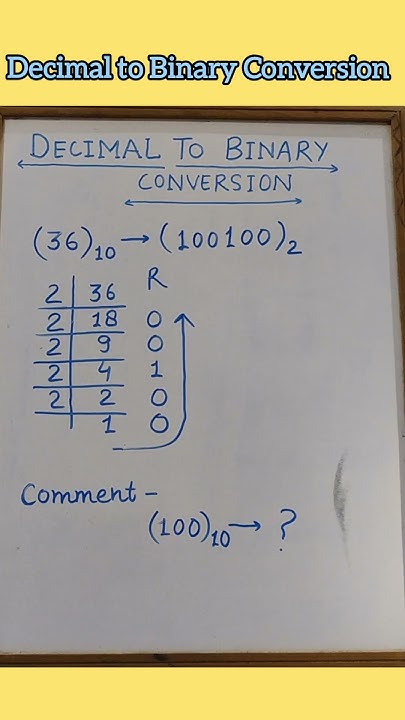 Decimal to Binary Conversion
DECIMAL TO BINARY
CONVERSION
(36)₁₀ → (100100)₂
R
2 36
2 18 0
2 9 0
2 4 1
2 2 0
1 0
Comment -
(100)₁₀ → ?